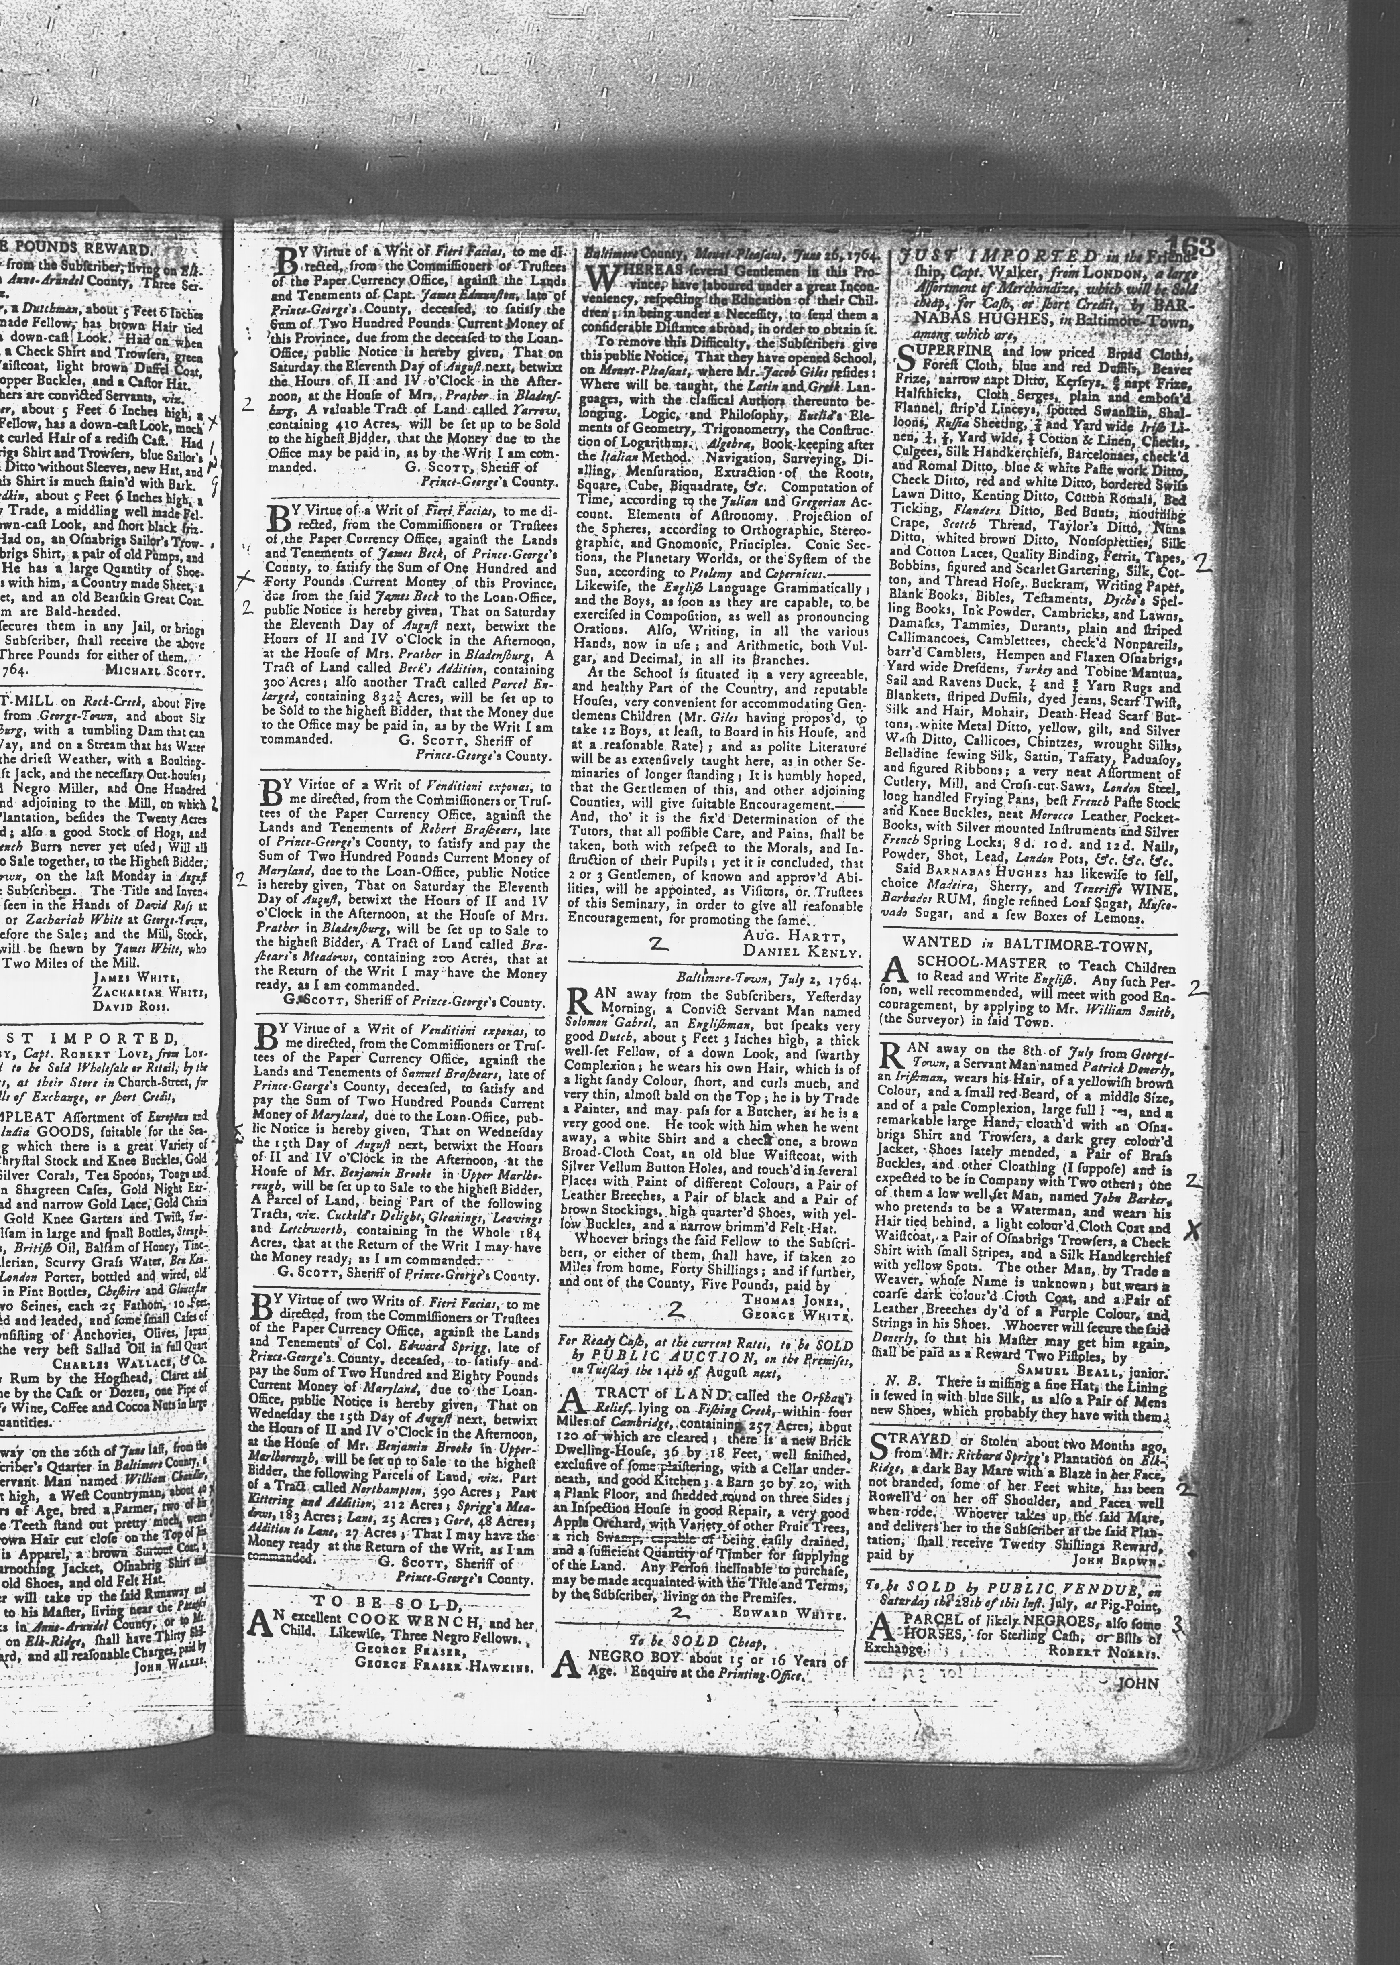 E POUNDS REWARD.
from the Subſcriber, living on Elk-
Anne-Arundel County, Three Ser-
a Dutchman, about 5 Feet 6 Inches
made Fellow, has brown Hair tied
down-caſt Look. Had on when
a Check Shirt and Trowſers, green
aiſtcoat, light brown Duffel Coat,
opper Buckles, and a Caſtor Hat.
hers are convicted Servants, viz.
er, about 5 Feet 6 Inches high, a
Fellow, has a down-caſt Look, much
t curled Hair of a rediſh Caſt. Had
rigs Shirt and Trowſers, blue Sailor's
Ditto without Sleeves, new Hat, and
his Shirt is much ſtain'd with Bark.
edkin, about 5 Feet 6 Inches high, a
Trade, a middling well made Fel-
wn-caſt Look, and ſhort black friz-
Had on, an Oſnabrigs Sailor's Trow-
brigs Shirt, a pair of old Pumps, and
He has a large Quantity of Shoe-
s with him, a Country made Sheet, a
et, and an old Bearſkin Great Coat.
m are Bald-headed.
ſecures them in any Jail, or brings
Subſcriber, ſhall receive the above
Three Pounds for either of them.
1764. MICHAEL SCOTT.
T-MILL on Rock-Creek, about Five
from George-Town, and about Six
burg, with a tumbling Dam that can
Way, and on a Stream that has Water
the drieſt Weather, with a Boulting-
ſt Jack, and the neceſſary Out-houſes;
d Negro Miller, and One Hundred
nd adjoining to the Mill, on which
Plantation, beſides the Twenty Acres
d; alſo a good Stock of Hogs, and
ench Burrs never yet uſed; Will all
o Sale together, to the Higheſt Bidder,
own, on the laſt Monday in Auguſt
e Subſcribers. The Title and Inven-
ſeen in the Hands of David Roſs at
or Zachariah White at George-Town,
efore the Sale; and the Mill, Stock,
will be ſhewn by James White, who
Two Miles of the Mill.
JAMES WHITE,
ZACHARIAH WHITE,
DAVID ROSS.
ST IMPORTED,
Y, Capt. ROBERT LOVE, from Lon-
d to be Sold Wholeſale or Retail, by the
s, at their Store in Church-Street, for
lls of Exchange, or ſhort Credit,
MPLEAT Aſſortment of European and
India GOODS, ſuitable for the Sea-
g which there is a great Variety of
Chryſtal Stock and Knee Buckles, Gold
Silver Corals, Tea Spoons, Tongs and
n Shagreen Caſes, Gold Night Ear-
ad and narrow Gold Lace, Gold Chain
Gold Knee Garters and Twiſt,
lſam in large and ſmall Bottles,
, Britiſh Oil, Balſam of Honey, Tinc-
lerian, Scurvy Graſs Water,
London Porter, bottled and wired, old
in Pint Bottles, Cheſhire and Glouceſter
wo Seines, each 25 Fathom, 10 Feet
ed and leaded, and ſome ſmall Caſes of
onſiſting of Anchovies, Olives, Japan
the very beſt Sallad Oil in full Quart
CHARLES WALLACE, & Co.
Rum by the Hogſhead, Claret and
ne by the Caſk or Dozen, one Pipe of
's Wine, Coffee and Cocoa Nuts in large
quantities.
way on the 26th of June laſt, from the
ſcriber's Quarter in Baltimore County, a
ervant Man named William Chandler,
t high, a Weſt Countryman, about 40
rs of Age, bred a Farmer, two of his
e Teeth ſtand out pretty much, wears
own Hair cut cloſe on the Top of his
is Apparel, a brown Surtout Coat, a
arnothing Jacket, Oſnabrig Shirt and
old Shoes, and old Felt Hat.
er will take up the ſaid Runaway and
to his Maſter, living near the Patapſco
s in Anne-Arundel County, or to Mr.
on Elk-Ridge, ſhall have Thirty Shil-
ard, and all reaſonable Charges, paid by
JOHN WALLES.
BY Virtue of a Writ of Fieri Facias, to me di-
rected, from the Commiſſioners or Truſtees
of the Paper Currency Office, againſt the Lands
and Tenements of Capt. James Edmunſton, late of
Prince-George's County, deceaſed, to ſatisfy the
Sum of Two Hundred Pounds Current Money of
this Province, due from the deceaſed to the Loan-
Office, public Notice is hereby given, That on
Saturday the Eleventh Day of Auguſt next, betwixt
the Hours of II and IV o'Clock in the After-
noon, at the Houſe of Mrs. Prather in Bladenſ-
burg, A valuable Tract of Land called Yarrow,
containing 410 Acres, will be ſet up to be Sold
to the higheſt Bidder, that the Money due to the
Office may be paid in, as by the Writ I am com-
manded. G. SCOTT, Sheriff of
Prince-George's County.
2
BY Virtue of a Writ of Fieri Facias, to me di-
rected, from the Commiſſioners or Truſtees
of the Paper Currency Office, againſt the Lands
and Tenements of James Beck, of Prince-George's
County, to ſatisfy the Sum of One Hundred and
Forty Pounds Current Money of this Province,
due from the ſaid James Beck to the Loan-Office,
public Notice is hereby given, That on Saturday
the Eleventh Day of Auguſt next, betwixt the
Hours of II and IV o'Clock in the Afternoon,
at the Houſe of Mrs. Prather in Bladenſburg, A
Tract of Land called Beck's Addition, containing
300 Acres; alſo another Tract called Parcel En-
larged, containing 832½ Acres, will be ſet up to
be Sold to the higheſt Bidder, that the Money due
to the Office may be paid in, as by the Writ I am
commanded. G. SCOTT, Sheriff of
Prince-George's County.
2
BY Virtue of a Writ of Venditioni exponas, to
me directed, from the Commiſſioners or Truſ-
tees of the Paper Currency Office, againſt the
Lands and Tenements of Robert Braſhears, late
of Prince-George's County, to ſatisfy and pay the
Sum of Two Hundred Pounds Current Money of
Maryland, due to the Loan-Office, public Notice
is hereby given, That on Saturday the Eleventh
Day of Auguſt, betwixt the Hours of II and IV
o'Clock in the Afternoon, at the Houſe of Mrs.
Prather in Bladenſburg, will be ſet up to Sale to
the higheſt Bidder, A Tract of Land called Bra-
ſhears's Meadows, containing 200 Acres, that at
the Return of the Writ I may have the Money
ready, as I am commanded.
G. SCOTT, Sheriff of Prince-George's County.
2
BY Virtue of a Writ of Venditioni exponas, to
me directed, from the Commiſſioners or Truſ-
tees of the Paper Currency Office, againſt the
Lands and Tenements of Samuel Braſhears, late of
Prince-George's County, deceaſed, to ſatisfy and
pay the Sum of Two Hundred Pounds Current
Money of Maryland, due to the Loan-Office, pub-
lic Notice is hereby given, That on Wedneſday
the 15th Day of Auguſt next, betwixt the Hours
of II and IV o'Clock in the Afternoon, at the
Houſe of Mr. Benjamin Brooke in Upper Marlbo-
rough, will be ſet up to Sale to the higheſt Bidder,
A Parcel of Land, being Part of the following
Tracts, viz. Cuckold's Delight, Gleanings, Leavings
and Letchworth, containing in the Whole 184
Acres, that at the Return of the Writ I may have
the Money ready, as I am commanded.
G. SCOTT, Sheriff of Prince-George's County.
BY Virtue of two Writs of Fieri Facias, to me
directed, from the Commiſſioners or Truſtees
of the Paper Currency Office, againſt the Lands
and Tenements of Col. Edward Sprigg, late of
Prince-George's County, deceaſed, to ſatisfy and
pay the Sum of Two Hundred and Eighty Pounds
Current Money of Maryland, due to the Loan-
Office, public Notice is hereby given, That on
Wedneſday the 15th Day of Auguſt next, betwixt
the Hours of II and IV o'Clock in the Afternoon,
at the Houſe of Mr. Benjamin Brooke in Upper-
Marlborough, will be ſet up to Sale to the higheſt
Bidder, the following Parcels of Land, viz. Part
of a Tract called Northampton, 390 Acres; Part
Kittering and Addition, 212 Acres; Sprigg's Mea-
dows, 183 Acres; Lane, 25 Acres; Gore, 48 Acres;
Addition to Lane, 27 Acres; That I may have the
Money ready at the Return of the Writ, as I am
commanded. G. SCOTT, Sheriff of
Prince-George's County.
TO BE SOLD,
AN excellent COOK WENCH, and her
Child. Likewiſe, Three Negro Fellows.
GEORGE FRASER,
GEORGE FRASER HAWKINS.
Baltimore County, Mount-Pleaſant, June 26, 1764.
WHEREAS ſeveral Gentlemen in this Pro-
vince, have laboured under a great Incon-
veniency, reſpecting the Education of their Chil-
dren; in being under a Neceſſity, to ſend them a
conſiderable Diſtance abroad, in order to obtain it.
To remove this Difficulty, the Subſcribers give
this public Notice, That they have opened School,
on Mount-Pleaſant, where Mr. Jacob Giles reſides:
Where will be taught, the Latin and Greek Lan-
guages, with the claſſical Authors thereunto be-
longing. Logic, and Philoſophy, Euclid's Ele-
ments of Geometry, Trigonometry, the Conſtruc-
tion of Logarithms. Algebra, Book-keeping after
the Italian Method. Navigation, Surveying, Di-
alling, Menſuration, Extraction of the Roots,
Square, Cube, Biquadrate, &c. Computation of
Time, according to the Julian and Gregorian Ac-
count. Elements of Aſtronomy. Projection of
the Spheres, according to Orthographic, Stereo-
graphic, and Gnomonic, Principles. Conic Sec-
tions, the Planetary Worlds, or the Syſtem of the
Sun, according to Ptolemy and Copernicus.——
Likewiſe, the Engliſh Language Grammatically;
and the Boys, as ſoon as they are capable, to be
exerciſed in Compoſition, as well as pronouncing
Orations. Alſo, Writing, in all the various
Hands, now in uſe; and Arithmetic, both Vul-
gar, and Decimal, in all its Branches.
As the School is ſituated in a very agreeable,
and healthy Part of the Country, and reputable
Houſes, very convenient for accommodating Gen-
tlemens Children (Mr. Giles having propos'd, to
take 12 Boys, at leaſt, to Board in his Houſe, and
at a reaſonable Rate); and as polite Literature
will be as extenſively taught here, as in other Se-
minaries of longer ſtanding; It is humbly hoped,
that the Gentlemen of this, and other adjoining
Counties, will give ſuitable Encouragement.——
And, tho' it is the fix'd Determination of the
Tutors, that all poſſible Care, and Pains, ſhall be
taken, both with reſpect to the Morals, and In-
ſtruction of their Pupils; yet it is concluded, that
2 or 3 Gentlemen, of known and approv'd Abi-
lities, will be appointed, as Viſitors, or Truſtees
of this Seminary, in order to give all reaſonable
Encouragement, for promoting the ſame.
AUG. HARTT,
2 DANIEL KENLY.
Baltimore-Town, July 2, 1764.
RAN away from the Subſcribers, Yeſterday
Morning, a Convict Servant Man named
Solomon Gabrel, an Engliſhman, but ſpeaks very
good Dutch, about 5 Feet 3 Inches high, a thick
well-ſet Fellow, of a down Look, and ſwarthy
Complexion; he wears his own Hair, which is of
a light ſandy Colour, ſhort, and curls much, and
very thin, almoſt bald on the Top; he is by Trade
a Painter, and may paſs for a Butcher, as he is a
very good one. He took with him when he went
away, a white Shirt and a check one, a brown
Broad-Cloth Coat, an old blue Waiſtcoat, with
Silver Vellum Button Holes, and touch'd in ſeveral
Places with Paint of different Colours, a Pair of
Leather Breeches, a Pair of black and a Pair of
brown Stockings, high quarter'd Shoes, with yel-
low Buckles, and a narrow brimm'd Felt Hat.
Whoever brings the ſaid Fellow to the Subſcri-
bers, or either of them, ſhall have, if taken 20
Miles from home, Forty Shillings; and if further,
and out of the County, Five Pounds, paid by
THOMAS JONES,
2 GEORGE WHITE.
For Ready Caſh, at the current Rates, to be SOLD
by PUBLIC AUCTION, on the Premiſes,
on Tueſday the 14th of Auguſt next,
A TRACT of LAND called the Orphan's
Relief, lying on Fiſhing Creek, within four
Miles of Cambridge, containing 257 Acres, about
120 of which are cleared; there is a new Brick
Dwelling-Houſe, 36 by 18 Feet, well finiſhed,
excluſive of ſome plaiſtering, with a Cellar under-
neath, and good Kitchen; a Barn 30 by 20, with
a Plank Floor, and ſhedded round on three Sides;
an Inſpection Houſe in good Repair, a very good
Apple Orchard, with Variety of other Fruit Trees,
a rich Swamp, capable of being eaſily drained,
and a ſufficient Quantity of Timber for ſupplying
of the Land. Any Perſon inclinable to purchaſe,
may be made acquainted with the Title and Terms,
by the Subſcriber, living on the Premiſes.
2 EDWARD WHITE.
To be SOLD Cheap,
A NEGRO BOY about 15 or 16 Years of
Age. Enquire at the Printing-Office.
163
JUST IMPORTED in the Friend-
ſhip, Capt. Walker, from LONDON, a large
Aſſortment of Merchandize, which will be Sold
cheap, for Caſh, or ſhort Credit, by BAR-
NABAS HUGHES, in Baltimore-Town,
among which are,
SUPERFINE and low priced Broad Cloths,
Foreſt Cloth, blue and red Duffils, Beaver
Frize, narrow napt Ditto, Kerſeys, napt Frize,
Halfthicks, Cloth Serges, plain and emboſ'd
Flannel, ſtrip'd Linceys, ſpotted Swanſkin, Shal-
loons, Ruſſia Sheeting, and Yard wide Iriſh Li-
nen, Yard wide, Cotton & Linen, Checks,
Culgees, Silk Handkerchiefs, Barcelonaes, check'd
and Romal Ditto, blue & white Paſte work Ditto,
Check Ditto, red and white Ditto, bordered Swiſs
Lawn Ditto, Kenting Ditto, Cotton Romals, Bed
Ticking, Flanders Ditto, Bed Bunts, mourning
Crape, Scotch Thread, Taylor's Ditto, Nuns
Ditto, whited brown Ditto, Nonſopretties, Silk
and Cotton Laces, Quality Binding, Ferrit, Tapes,
Bobbins, figured and Scarlet Gartering, Silk, Cot-
ton, and Thread Hoſe, Buckram, Writing Paper,
Blank Books, Bibles, Teſtaments, Dyche's Spel-
ling Books, Ink Powder, Cambricks, and Lawns,
Damaſks, Tammies, Durants, plain and ſtriped
Callimancoes, Camblettees, check'd Nonpareils,
barr'd Camblets, Hempen and Flaxen Oſnabrigs,
Yard wide Dreſdens, Turkey and Tobine Mantua,
Sail and Ravens Duck, Yarn Rugs and
Blankets, ſtriped Duffils, dyed Jeans, Scarf Twiſt,
Silk and Hair, Mohair, Death Head Scarf But-
tons, white Metal Ditto, yellow, gilt, and Silver
Waſh Ditto, Callicoes, Chintzes, wrought Silks,
Belladine ſewing Silk, Sattin, Taffaty, Paduaſoy,
and figured Ribbons; a very neat Aſſortment of
Cutlery, Mill, and Croſs-cut Saws, London Steel,
long handled Frying Pans, beſt French Paſte Stock
and Knee Buckles, neat Morocco Leather Pocket-
Books, with Silver mounted Inſtruments and Silver
French Spring Locks; 8d. 10d. and 12d. Nails,
Powder, Shot, Lead, London Pots, &c. &c. &c.
Said BARNABAS HUGHES has likewiſe to ſell,
choice Madeira, Sherry, and Teneriffe WINE,
Barbados RUM, ſingle refined Loaf Sugar, Muſco-
vado Sugar, and a few Boxes of Lemons.
2
WANTED in BALTIMORE-TOWN,
A SCHOOL-MASTER to Teach Children
to Read and Write Engliſh. Any ſuch Per-
ſon, well recommended, will meet with good En-
couragement, by applying to Mr. William Smith,
(the Surveyor) in ſaid Town.
2
RAN away on the 8th of July from George-
Town, a Servant Man named Patrick Donerly,
an Iriſhman, wears his Hair, of a yellowiſh brown
Colour, and a ſmall red Beard, of a middle Size,
and of a pale Complexion, large full and a
remarkable large Hand, cloath'd with an Oſna-
brigs Shirt and Trowſers, a dark grey colour'd
Jacket, Shoes lately mended, a Pair of Braſs
Buckles, and other Cloathing (I ſuppoſe) and is
expected to be in Company with Two others; one
of them a low well ſet Man, named John Barker,
who pretends to be a Waterman, and wears his
Hair tied behind, a light colour'd Cloth Coat and
Waiſtcoat, a Pair of Oſnabrigs Trowſers, a Check
Shirt with ſmall Stripes, and a Silk Handkerchief
with yellow Spots. The other Man, by Trade a
Weaver, whoſe Name is unknown; but wears a
coarſe dark colour'd Cloth Coat, and a Pair of
Leather Breeches dy'd of a Purple Colour, and
Strings in his Shoes. Whoever will ſecure the ſaid
Donerly, ſo that his Maſter may get him again,
ſhall be paid as a Reward Two Piſtoles, by
SAMUEL BEALL, junior.
N. B. There is miſſing a fine Hat, the Lining
is ſewed in with blue Silk, as alſo a Pair of Mens
new Shoes, which probably they have with them.
2
STRAYED or Stolen about two Months ago,
from Mr. Richard Sprigg's Plantation on Elk-
Ridge, a dark Bay Mare with a Blaze in her Face,
not branded, ſome of her Feet white, has been
Rowell'd on her off Shoulder, and Paces well
when rode. Whoever takes up the ſaid Mare,
and delivers her to the Subſcriber at the ſaid Plan-
tation, ſhall receive Twenty Shillings Reward,
paid by JOHN BROWN.
2
To be SOLD by PUBLIC VENDUE, on
Saturday the 28th of this Inſt. July, at Pig-Point,
A PARCEL of likely NEGROES, alſo ſome
HORSES, for Sterling Caſh, or Bills of
Exchange. ROBERT NORRIS.
3
JOHN